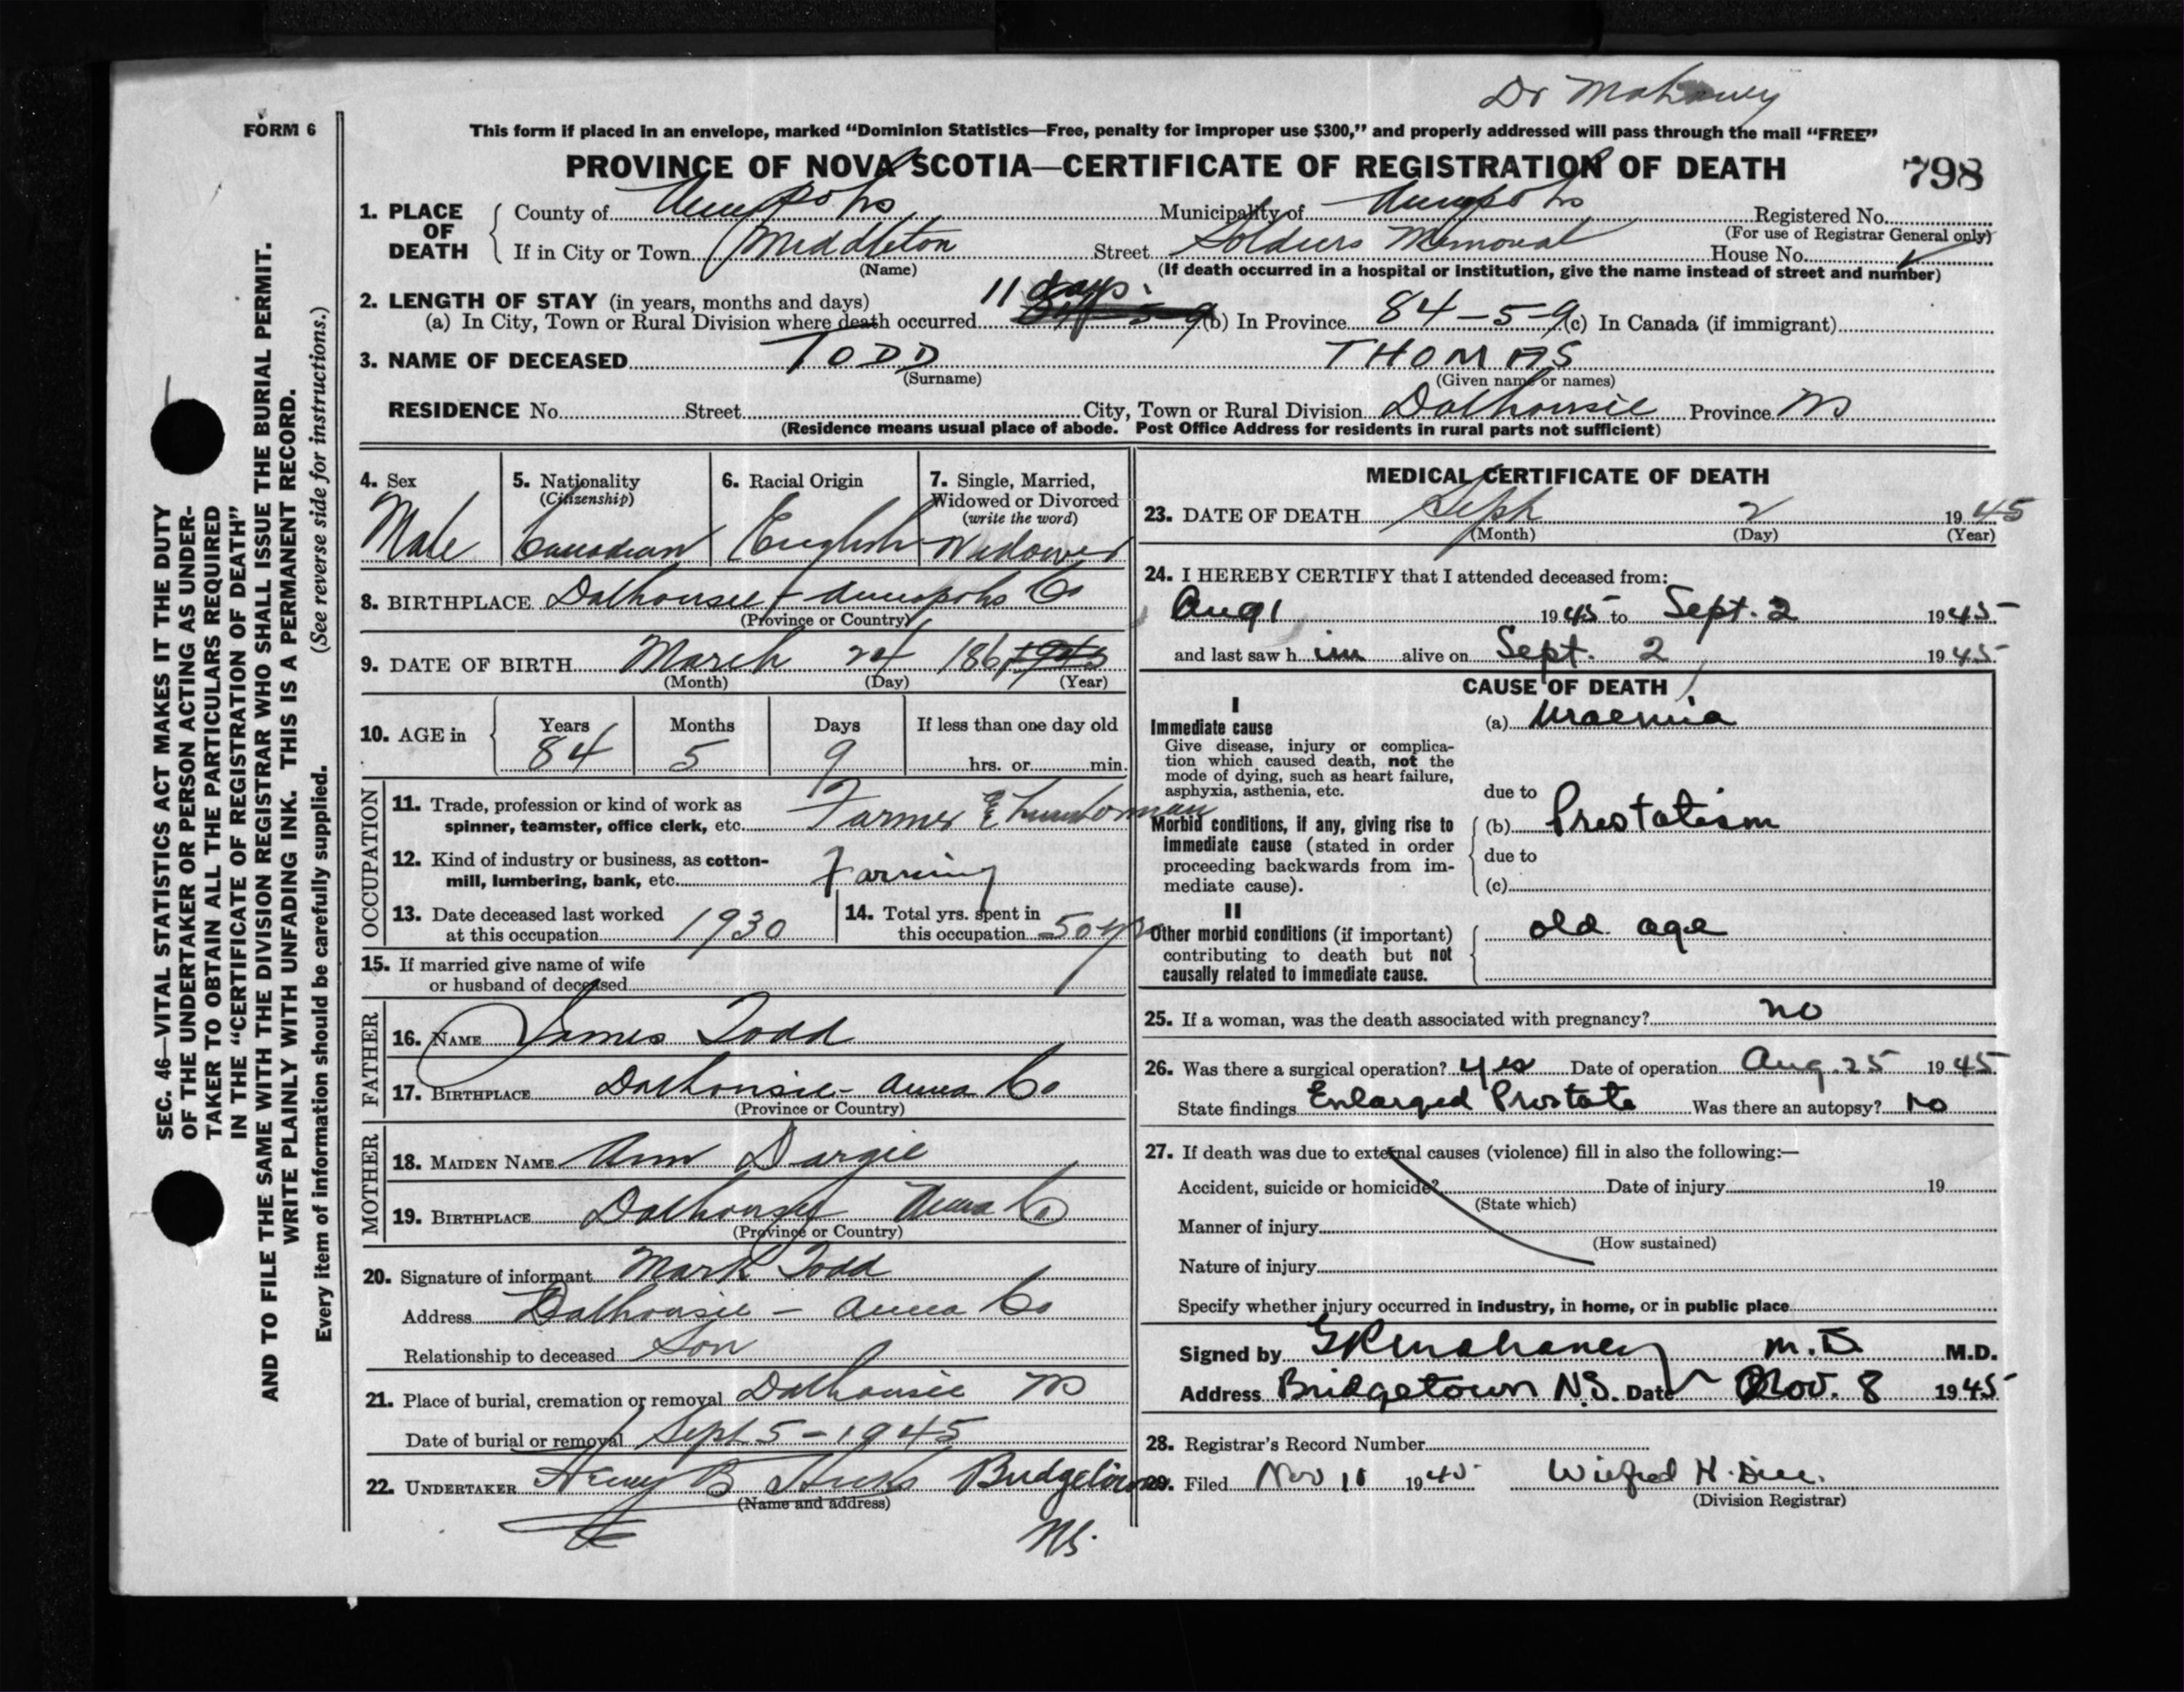 Dr Mahaney
FORM 6
This form if placed in an envelope, marked “Dominion Statistics—Free, penalty for improper use $300,” and properly addressed will pass through the mail “FREE”
PROVINCE OF NOVA SCOTIA—CERTIFICATE OF REGISTRATION OF DEATH
798
1. PLACE OF DEATH
County of Annapolis Municipality of Annapolis Registered No.
(For use of Registrar General only)
If in City or Town Middleton Street Soldiers Memorial House No.
(Name) (If death occurred in a hospital or institution, give the name instead of street and number)
2. LENGTH OF STAY (in years, months and days)
(a) In City, Town or Rural Division where death occurred 11 days (b) In Province 84-5-9 (c) In Canada (if immigrant)
3. NAME OF DECEASED TODD THOMAS
(Surname) (Given name or names)
RESIDENCE No. Street City, Town or Rural Division Dalhousie Province NS
(Residence means usual place of abode. Post Office Address for residents in rural parts not sufficient)
4. Sex
Male
5. Nationality
(Citizenship)
Canadian
6. Racial Origin
English
7. Single, Married,
Widowed or Divorced
(write the word)
Widower
8. BIRTHPLACE Dalhousie - Annapolis Co
(Province or Country)
9. DATE OF BIRTH March 24 1861
(Month) (Day) (Year)
10. AGE in
Years Months Days If less than one day old
84 5 9 hrs. or min.
OCCUPATION
11. Trade, profession or kind of work as
spinner, teamster, office clerk, etc. Farmer & Lumberman
12. Kind of industry or business, as cotton-
mill, lumbering, bank, etc. Farming
13. Date deceased last worked
at this occupation 1930
14. Total yrs. spent in
this occupation 50 yrs
15. If married give name of wife
or husband of deceased
FATHER
16. NAME James Todd
17. BIRTHPLACE Dalhousie - Anna Co
(Province or Country)
MOTHER
18. MAIDEN NAME Ann Dargie
19. BIRTHPLACE Dalhousie Anna Co
(Province or Country)
20. Signature of informant Mark Todd
Address Dalhousie - Anna Co
Relationship to deceased Son
21. Place of burial, cremation or removal Dalhousie NS
Date of burial or removal Sept 5 - 1945
22. UNDERTAKER Henry B Hicks Bridgetown
(Name and address)
NS.
MEDICAL CERTIFICATE OF DEATH
23. DATE OF DEATH Sept 2 1945
(Month) (Day) (Year)
24. I HEREBY CERTIFY that I attended deceased from:
Aug 1 1945 to Sept. 2 1945
and last saw him alive on Sept. 2 1945
CAUSE OF DEATH
I
Immediate cause
Give disease, injury or complica-
tion which caused death, not the
mode of dying, such as heart failure,
asphyxia, asthenia, etc.
(a) Uraemia
due to
Morbid conditions, if any, giving rise to
immediate cause (stated in order
proceeding backwards from im-
mediate cause).
(b) Prostatism
due to
(c)
II
Other morbid conditions (if important)
contributing to death but not
causally related to immediate cause.
old age
25. If a woman, was the death associated with pregnancy? no
26. Was there a surgical operation? yes Date of operation Aug. 25 1945
State findings Enlarged Prostate Was there an autopsy? no
27. If death was due to external causes (violence) fill in also the following:—
Accident, suicide or homicide? Date of injury 19
(State which)
Manner of injury
(How sustained)
Nature of injury
Specify whether injury occurred in industry, in home, or in public place
Signed by Mahaney M.D. M.D.
Address Bridgetown N.S. Date Nov. 8 1945
28. Registrar's Record Number
29. Filed Nov 10 1945 Wilfred H.
(Division Registrar)
SEC. 46—VITAL STATISTICS ACT MAKES IT THE DUTY
OF THE UNDERTAKER OR PERSON ACTING AS UNDER-
TAKER TO OBTAIN ALL THE PARTICULARS REQUIRED
IN THE “CERTIFICATE OF REGISTRATION OF DEATH”
AND TO FILE THE SAME WITH THE DIVISION REGISTRAR WHO SHALL ISSUE THE BURIAL PERMIT.
WRITE PLAINLY WITH UNFADING INK. THIS IS A PERMANENT RECORD.
Every item of information should be carefully supplied. (See reverse side for instructions.)